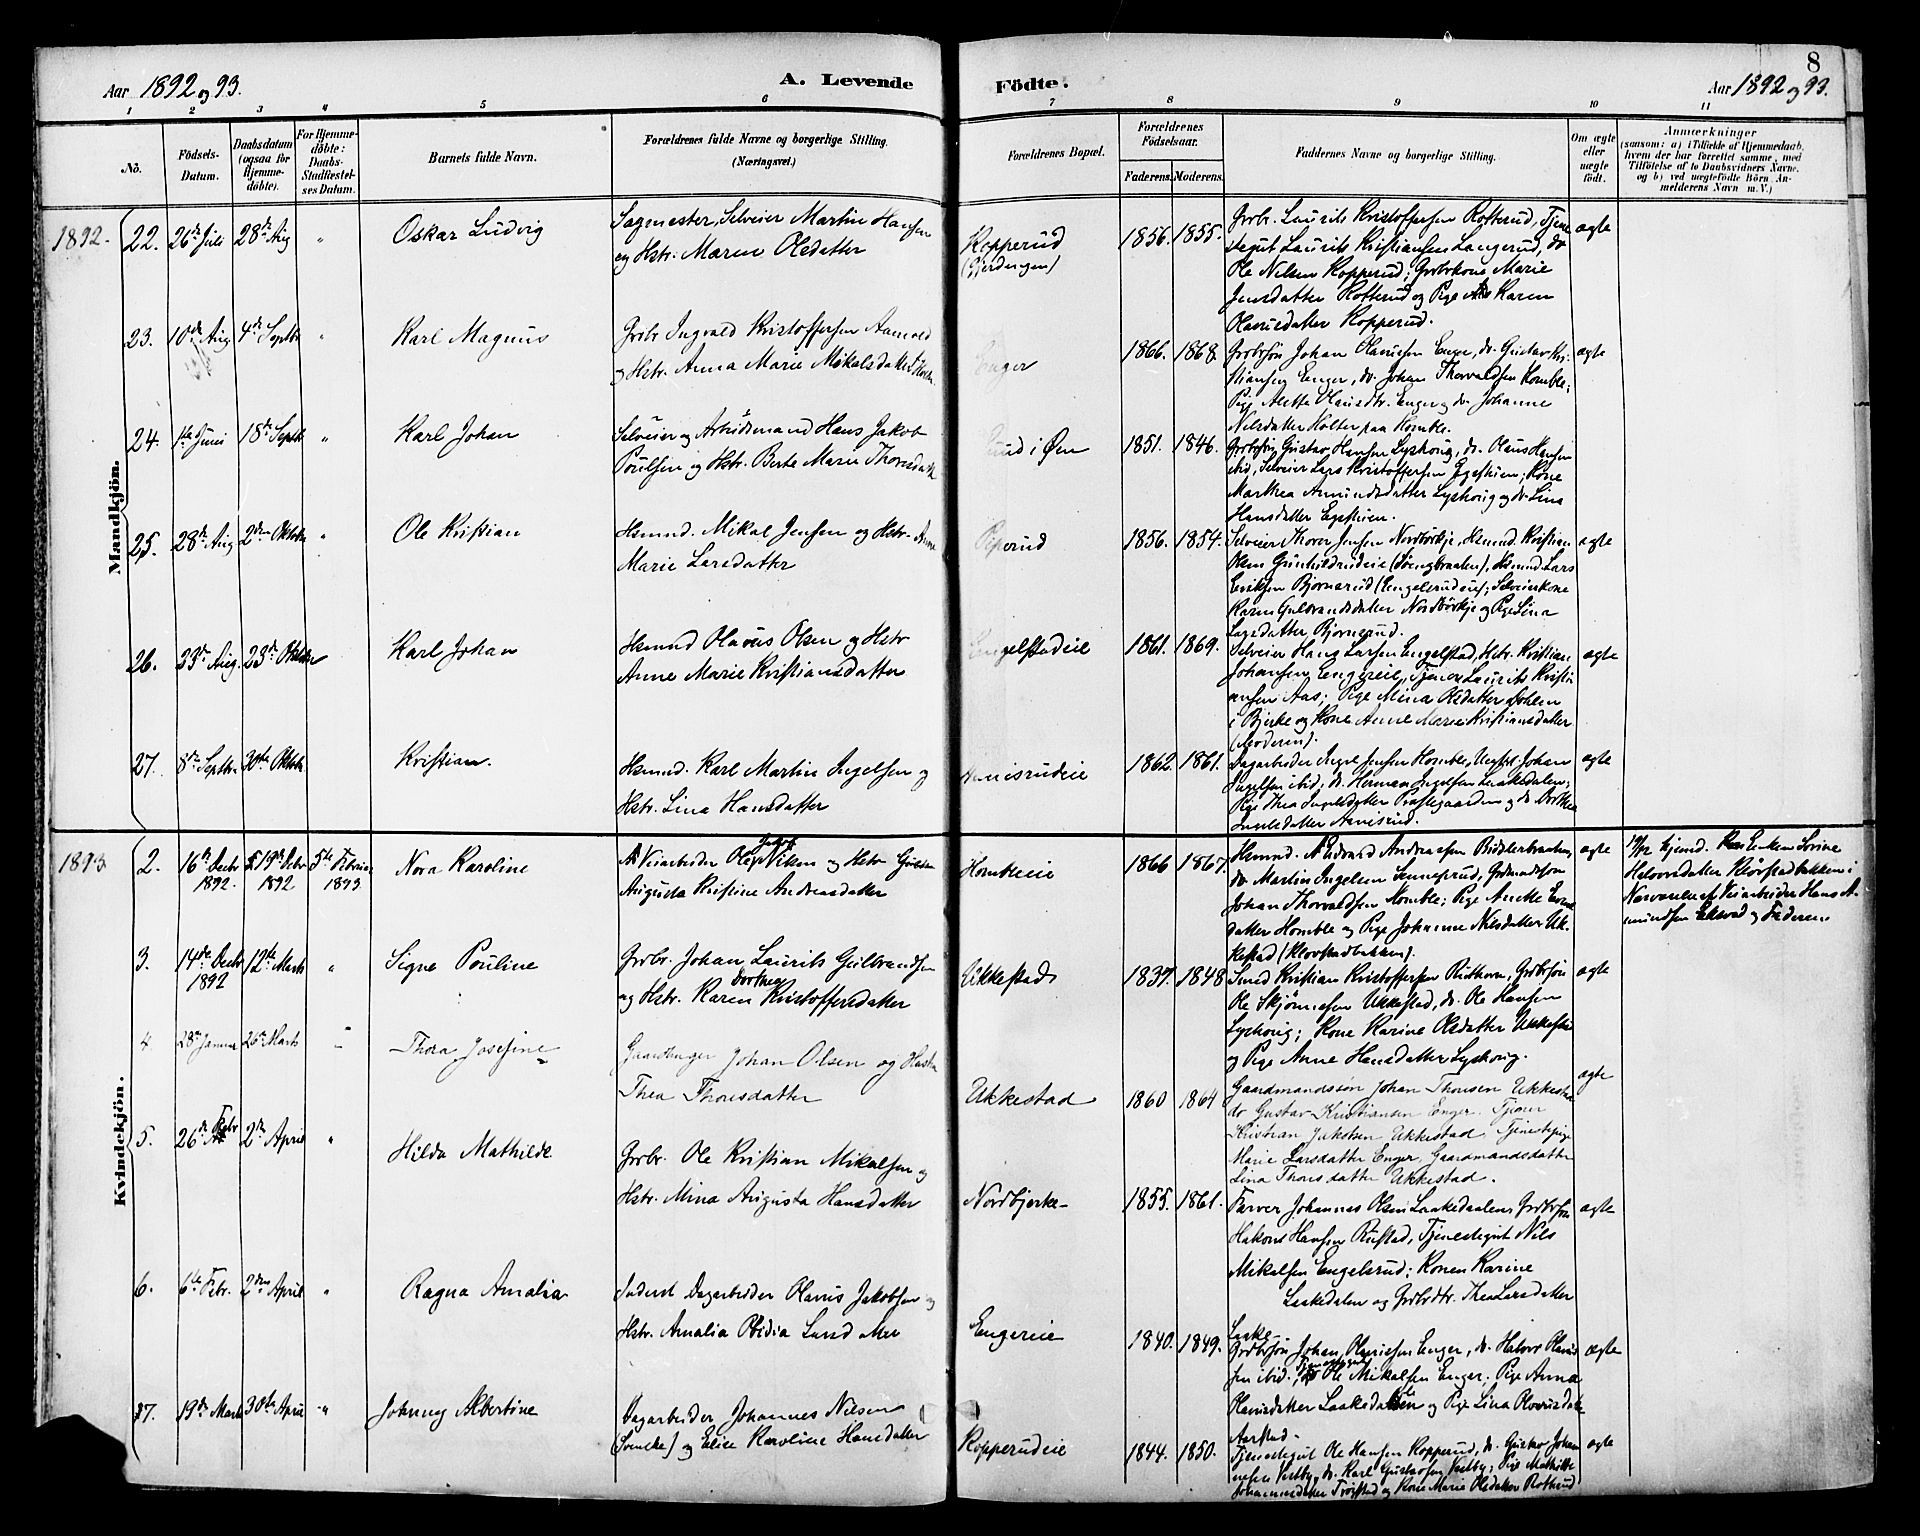 8
Aar 1892 og 93.
A. Levende
Födte.
Aar 1892 og 93.
1 2 3 4 5 6 7 8 9 10 11
No.
Födsels-
Datum.
Daabsdatum
(ogsaa for
Hjemme-
döbte).
For Hjemme-
döbte:
Daabs-
Stadfæstel-
ses Datum.
Barnets fulde Navn.
Forældrenes fulde Navne og borgerlige Stilling.
(Næringsvei.)
Forældrenes Bopæl.
Forældrenes
Födselsaar.
Faderens. Moderens.
Faddernes Navne og borgerlige Stilling.
Om ægte
eller
uægte
födt.
Anmærkninger
(saasom: a) i Tilfælde af Hjemmedaab,
hvem der har forrettet samme, med
Tilföielse af to Daabsvidners Navne.
og b) ved uægtefödte Börn An-
melderens Navn m. V.)
Mandkjön.
1892.
22. 26de Juli 28de Aug " Oskar Ludvig
Sagmester, Selveier Martin Hansen
og Hstr. Maren Olsdatter
Kopperud
(Gjerdingen)
1856. 1855.
Grbr. Laurits Kristoffersen Rotterud, Tjene-
stegut Laurits Kristiansen Langerud, do
Ole Nilsen Kopperud; Grbrkone Marie
Jensdatter Rotterud og Pige Karen
Olausdatter Kopperud.
ægte
23. 10de Aug 4de Septbr " Karl Magnus
Grbr Ingvald Kristoffersen Aamold
og Hstr. Anna Marie Mikalsdatter
Enger
1866. 1868.
Grbrsøn Johan Olausen Enger, do. Gustav Kri-
stiansen Enger, do. Johan Thorvaldsen Homble;
Pige Alette Olausdtr. Enger og do. Johanne
Nilsdatter Holter paa Homble.
ægte
24. 1ste Juni 18de Septb " Karl Johan
Selveier og Arbeidsmand Hans Jakob
Poulsen og Hstr. Berte Marie Thorsdatt
Ruud i Øen
1851. 1846.
Grbrsøn Gustav Hansen Lyshoug, do. Olaus Hansen
ibid, Selveier Lars Kristoffersen Egestuen; Kone
Marthea Amundsdatter Lyshoug og do Lina
Hansdatter Egestuen.
25. 28de Aug 2den Oktobr " Ole Kristian
Hsmnd. Mikal Jensen og Hstr. Anne
Marie Larsdatter
Piperud
1856. 1854.
Selveier Thorer Jensen Nordbörkje, Hsmnd. Kristian
Olsen Gunhildrudeie (Søengbraaten), Hsmnd Lars
Eriksen Bjornerud (Engelsrudeie); Selveierkone
Karen Gulbrandsdatter Nordbörkje og Pige Lina
Larsdatter Bjornerud.
ægte
26. 23de Aug. 23de Oktober Karl Johan
Hsmnd Olaus Olsen og Hstr
Anne Marie Kristiansdatter
Engelstadeie
1861. 1869.
Selveier Hans Larsen Engelstad, Hstr. Kristian
Johansen Engereie, Tjener Laurits Kristi-
ansen Aas; Pige Mina Olsdatter Dohlen
i Bjerke og Kone Anne Marie Kristiansdatter
(Moderen).
ægte
27. 8de Septbr. 30te Oktobr Kristian.
Hsmnd. Karl Martin Ingelsen og
Hstr. Lina Hansdatter
Amisrudeie
1862. 1861.
Dagarbeider Ingel Jensen Homble, Ungkarl Johan
Ingelsen ibid, do. Herman Ingelsen Laakedalen;
Pige Thea Ingelsdatter Præstegaarden og do Dorthea
Ingelsdatter Amisrud.
ægte
Kvindekjön.
1893
2. 16de Decbr 1892. 19de Decbr 1892 5te Februar 1893. Nora Karoline
Veiarbeider Ole Jakob Viken og Hstr
Augusta Kristine Andreasdatter
Hombleeie
1866 1867.
Hsmnd. Andreas
do Martin Ingelsen
Johan Thorvaldsen Homble; Pige Anette Evens-
datter Homble og Pige Johanne Nilsdatter Uk-
kestad (Kløvstadbakken).
ægte
19/12 hjemd. Enken Lovine
Halvorsdatter Kløvstadbakken i
Nærværelse af Veiarbeider Hans A-
mundsen og Faderen
3. 14de Decbr 1892 12te Marts " Signe Pouline
Grbr. Johan Laurits Gulbrandsen
og Hstr. Karen Dorthea Kristoffersdatter
Ukkestad
1837. 1848
Smed Kristian Kristoffersen Ruthorn, Grbrsøn
Ole Skjønnesen Ukkestad, do. Ole Hansen
Lyshoug; Kone Karine Olsdatter Ukkestad
og Pige Anne Hansdatter Lyshoug.
ægte
4 28de Januar 26de Marts " Thora Josefine
Gaardbruger Johan Olsen og Hustru
Thea Thorsdatter
Ukkestad
1860 1864
Gaardmandssøn Johan Thorsen Ukkestad
do Gustav Kristiansen Enger. Tjener
Kristian Jakobsen Ukkestad, Tjenestepige
Marie Larsdatter Enger, Gaardmandsdatter
Lina Thorsdatter Ukkestad.
ægte
5. 26de Febr 2den April " Hilda Mathilde
Grbr. Ole Kristian Mikalsen og
Hstr. Mina Augusta Hansdatter
Nordbjerke
1855. 1861.
Farver Johannes Olsen Laakedalen, Grdbrsøn
Hakon Hansen Rustad, Tjenestegut Nils
Mikalsen Engelsrud; Konen Karine
Laakedalen og Grbrdtr. Thea Larsdatter
Laake
ægte
6. 6te Febr. 2den April " Ragna Amalia
Inderst Dagarbeider Olaus Jakobsen og
Hstr. Amalia Obidia
Engereie
1840. 1849.
Grdbrsøn Johan Olausen Enger, do. Halvor Olaus-
sen ibid, Tjenestegut Ole Mikalsen Enger; Pige Anna
Olausdatter Laakedalen og Pige Lina Olausdatter
Aarstad.
ægte
7. 19de Marts 30te April " Johnny Albertine
Dagarbeider Johannes Nilsen
(Svenske) og Elise Karoline Hansdatter
Kopperudeie
1844. 1850.
Tjenestegut Ole Hansen Kopperud, do. Gustav Johan-
nesen Vestby, do. Karl Gustavsen Vestby; Pige Mathilde
Johannesdatter Trøgstad og Kone Marie Olsdatter Rotterud
ægte